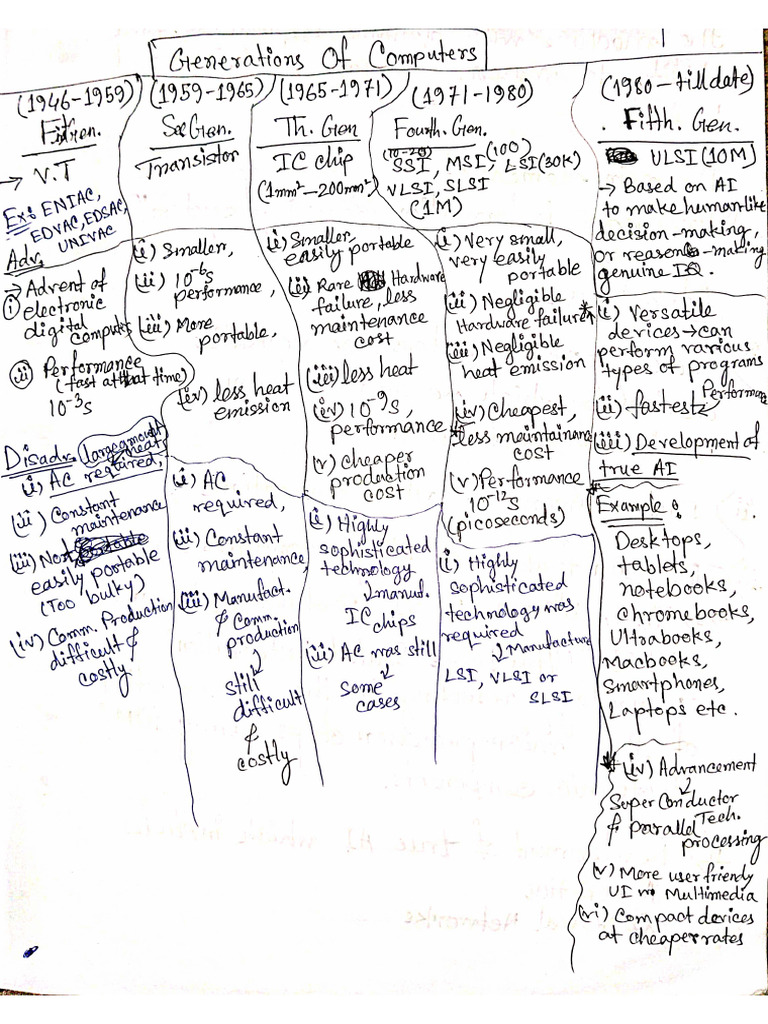 Generations Of Computers
(1946-1959)
Fi Gen.
→ V.T
Ex: ENIAC,
EDVAC, EDSAC,
UNIVAC
Adv.
→ Advent of
(i) electronic
digital
computers
(ii) Performance
(fast at that time)
10⁻³s
Disadv. (large amount
of heat)
(i) AC required,
(ii) Constant
maintenance
(iii) Not
easily portable
(Too bulky)
(iv) Comm. Production
difficult &
costly
(1959-1965)
Sec Gen.
Transistor
(i) Smaller,
(ii) 10⁻⁶s
performance,
(iii) More
portable,
(iv) less heat
emission
(i) AC
required,
(ii) Constant
maintenance
(iii) Manufact.
& Comm.
production
↓
still
difficult
&
costly
(1965-1971)
Th. Gen
IC chip
(1mm²-200mm²)
(i) Smaller,
easily portable
(ii) Rare Hardware
failure, less
maintenance
cost
(iii) less heat
(iv) 10⁻⁹s,
performance
(v) cheaper
production
cost
(i) Highly
sophisticated
technology
↓ manuf.
IC chips
(ii) AC was still
↓
some
cases
(1971-1980)
Fourth. Gen.
(10-20) (100)
SSI, MSI, LSI(30K)
VLSI, SLSI
(1M)
(i) Very small,
very easily
portable
(ii) Negligible
Hardware failure
(iii) Negligible
heat emission
(iv) Cheapest,
less maintainance
cost
(v) Performance
10⁻¹²s
(picoseconds)
(i) Highly
sophisticated
technology was
required
↓ Manufacture
LSI, VLSI or
SLSI
(1980-till date)
. Fifth. Gen.
ULSI (10M)
→ Based on AI
to make humanlike
decision-making,
or reason-making
genuine IQ.
(i) Versatile
devices → can
perform various
types of programs
(ii) fastest Performance
(iii) Development of
true AI
Example:
Desktops,
tablets,
notebooks,
chromebooks,
Ultrabooks,
Macbooks,
Smartphones,
Laptops etc.
(iv) Advancement
↓
Super Conductor
& parallel Tech.
processing
(v) More user friendly
UI Multimedia
(vi) Compact devices
at cheaper rates